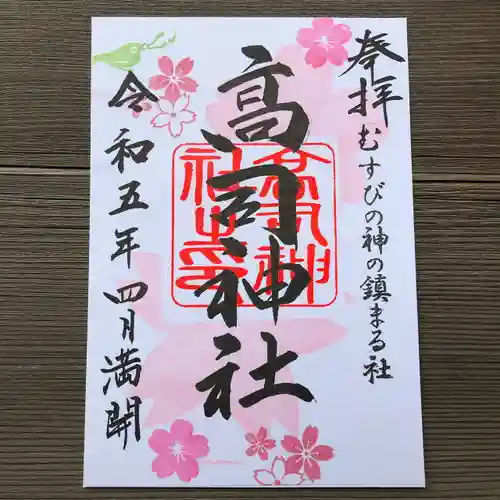 奉拝 むすびの神の鎮まる社
高司神社
令和五年 四月満開